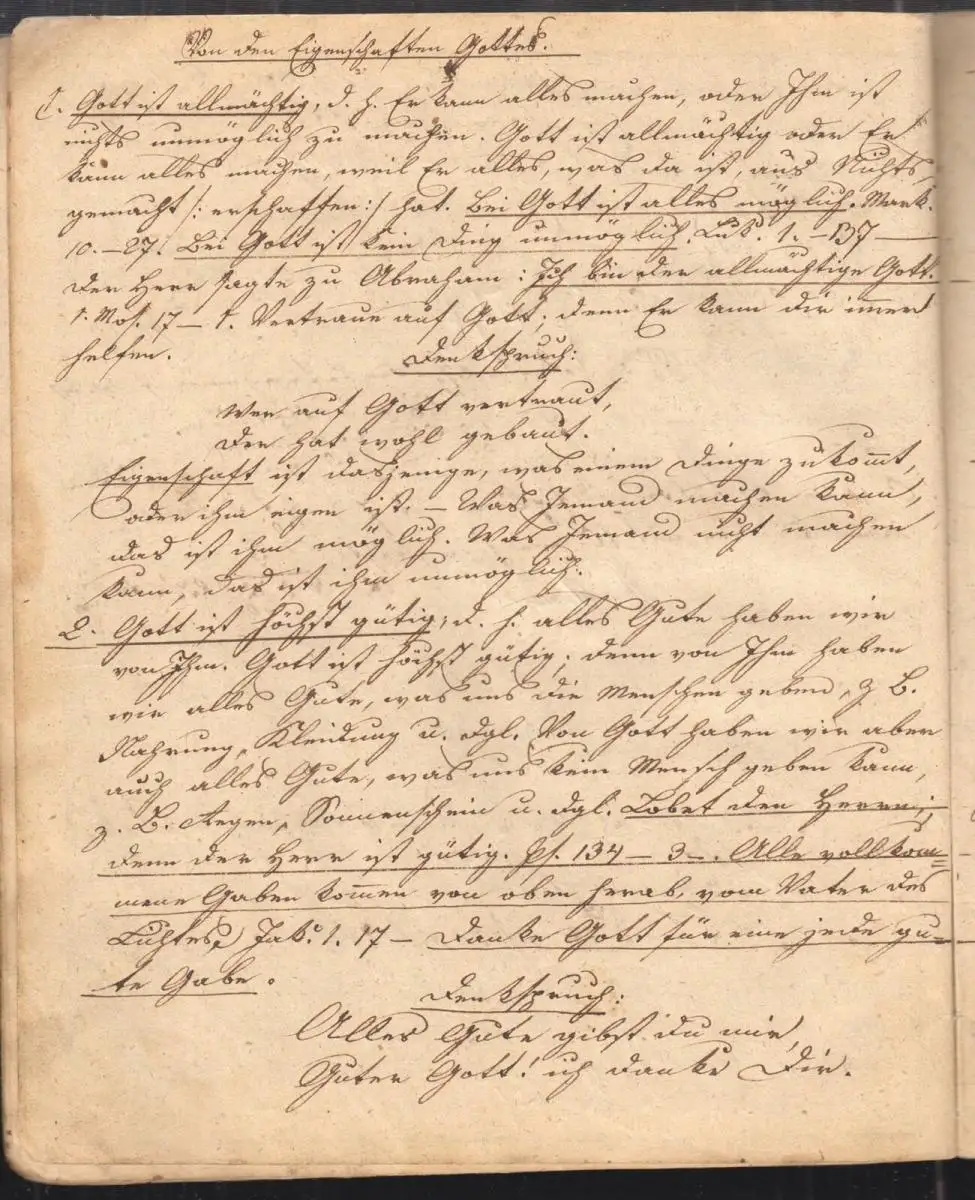 Von den Eigenschaften Gottes.
1. Gott ist allmächtig, d. h. Er kann alles machen, oder Ihm ist
nichts unmöglich zu machen. Gott ist allmächtig oder Er
kann alles machen, weil Er alles, was da ist, aus Nichts,
gemacht /: erschaffen :/ hat. Bei Gott ist alles möglich. Mark.
10. – 27. Bei Gott ist kein Ding unmöglich. Luk. 1. – 137 —
Der Herr sagte zu Abraham: Ich bin der allmächtige Gott.
1. Mos. 17 – 1. Vertraue auf Gott; denn Er kann dir immer
helfen.
Denkspruch:
Wer auf Gott vertraut,
Der hat wohl gebaut.
Eigenschaft ist dasjenige, was einem Dinge zukommt,
oder ihm eigen ist. – Was Jemand machen kann,
das ist ihm möglich. Was Jemand nicht machen
kann, das ist ihm unmöglich.
2. Gott ist höchst gütig, d. h. alles Gute haben wir
von Ihm. Gott ist höchst gütig; denn von Ihm haben
wir alles Gute, was uns die Menschen geben, z. B.
Nahrung, Kleidung u. dgl. Von Gott haben wir aber
auch alles Gute, was uns kein Mensch geben kann,
z. B. Regen, Sonnenschein u. dgl. Lobet den Herrn;
denn der Herr ist gütig. Ps. 134 – 3 –. Alle vollkom=
mene Gaben kom̅en von oben herab, vom Vater des
Lichtes, Jak. 1. 17 – Danke Gott für eine jede gu=
te Gabe.
Denkspruch:
Alles Gute gibst du mir,
Guter Gott! ich danke Dir.